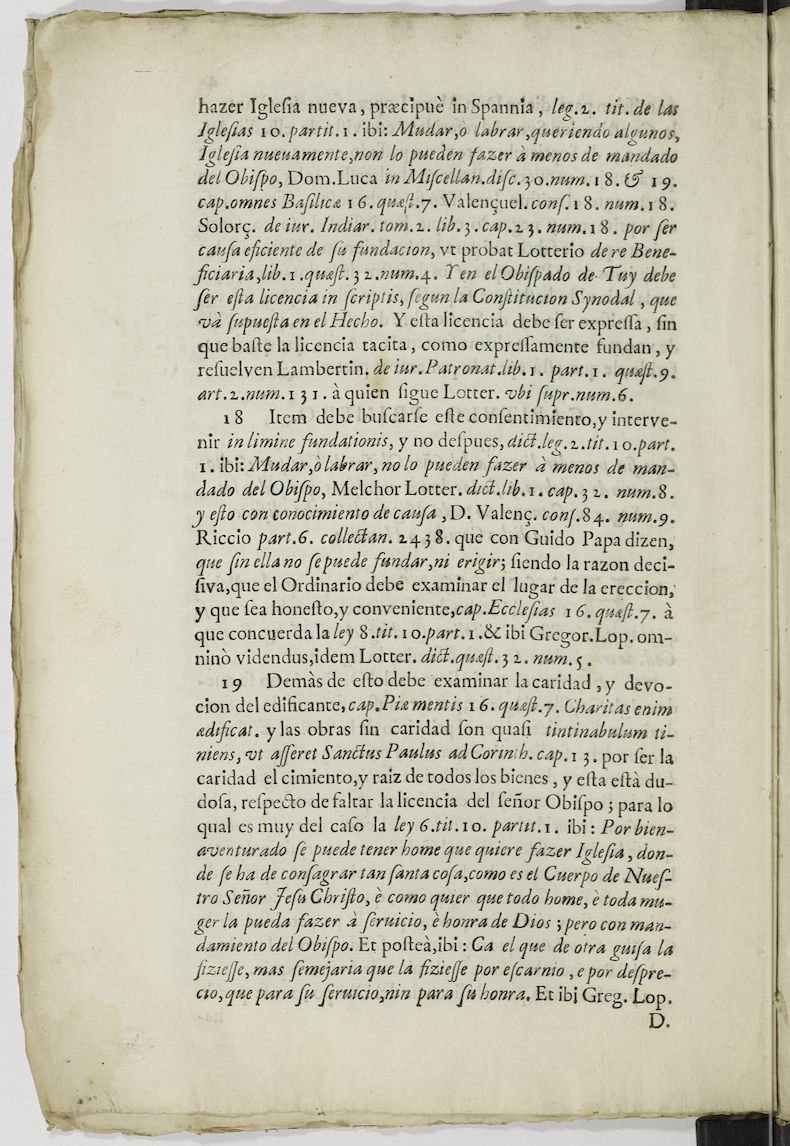 hazer Igleſia nueva, præcipuè in Spannia, leg.2. tit. de las
Igleſias 10. partit. 1. ibi: Mudar, o labrar, queriendo algunos,
Igleſia nueuamente, non lo pueden fazer à menos de mandado
del Obiſpo, Dom. Luca in Miſcellan. diſc. 30. num. 18. & 19.
cap. omnes Baſilicæ 16. quæſt. 7. Valençuel. conſ. 18. num. 18.
Solorç. de iur. Indiar. tom. 2. lib. 3. cap. 23. num. 18. por ſer
cauſa eficiente de ſu fundacion, vt probat Lotterio de re Bene-
ficiaria, lib. 1. quæſt. 32. num. 4. Y en el Obiſpado de Tuy debe
ſer eſta licencia in ſcriptis, ſegun la Conſtitucion Synodal, que
và ſupueſta en el Hecho. Y eſta licencia debe ſer expreſſa, ſin
que baſte la licencia tacita, como expreſſamente fundan, y
reſuelven Lambertin. de iur. Patronat. lib. 1. part. 1. quæſt. 9.
art. 2. num. 131. à quien ſigue Lotter. vbi ſupr. num. 6.
18 Item debe buſcarſe eſte conſentimiento, y interve-
nir in limine fundationis, y no deſpues, dict. leg. 2. tit. 10. part.
1. ibi: Mudar, ò labrar, no lo pueden fazer à menos de man-
dado del Obiſpo, Melchor Lotter. dict. lib. 1. cap. 32. num. 8.
y eſto con conocimiento de cauſa, D. Valenç. conſ. 84. num. 9.
Riccio part. 6. collectan. 2438. que con Guido Papa dizen,
que ſin ella no ſe puede fundar, ni erigir; ſiendo la razon deci-
ſiva, que el Ordinario debe examinar el lugar de la ereccion,
y que ſea honeſto, y conveniente, cap. Eccleſias 16. quæſt. 7. à
que concuerda la ley 8. tit. 10. part. 1. & ibi Gregor. Lop. om-
ninò videndus, idem Lotter. dict. quæſt. 32. num. 5.
19 Demàs de eſto debe examinar la caridad, y devo-
cion del edificante, cap. Piæ mentis 16. quæſt. 7. Charitas enim
ædificat. y las obras ſin caridad ſon quaſi tintinabulum ti-
niens, vt aſſeret Sanctus Paulus ad Corinth. cap. 13. por ſer la
caridad el cimiento, y raiz de todos los bienes, y eſta eſtà du-
doſa, reſpecto de faltar la licencia del ſeñor Obiſpo; para lo
qual es muy del caſo la ley 6. tit. 10. partit. 1. ibi: Por bien-
aventurado ſe puede tener home que quiere fazer Igleſia, don-
de ſe ha de conſagrar tan ſanta coſa, como es el Cuerpo de Nueſ-
tro Señor Jeſu Chriſto, è como quier que todo home, è toda mu-
ger la pueda fazer à ſeruicio, è honra de Dios; pero con man-
damiento del Obiſpo. Et poſteà, ibi: Ca el que de otra guiſa la
fizieſſe, mas ſemejaria que la fizieſſe por eſcarnio, e por deſpre-
cio, que para ſu ſeruicio, nin para ſu honra. Et ibi Greg. Lop.
D.